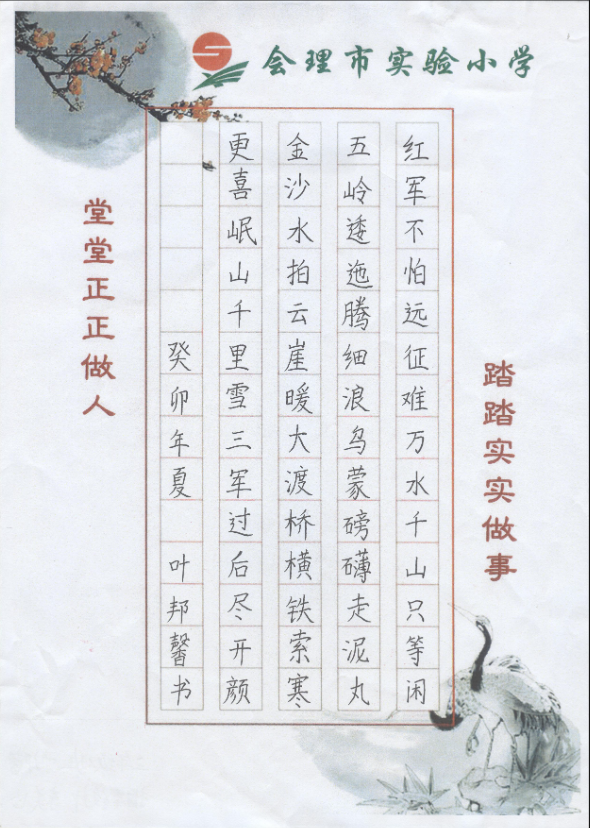 会理市实验小学
踏踏实实做事
红军不怕远征难万水千山只等闲
五岭逶迤腾细浪乌蒙磅礴走泥丸
金沙水拍云崖暖大渡桥横铁索寒
更喜岷山千里雪三军过后尽开颜
癸卯年夏 叶邦馨书
堂堂正正做人